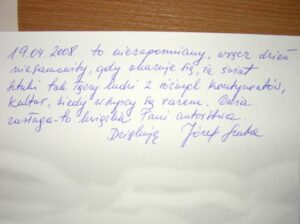 19.04.2008 to niezapomniany, wręcz dzień
niesamowity, gdy okazuje się, że świat
sztuki tak łączy ludzi z różnych kontynentów,
kultur, kiedy wszyscy są razem.
zasługa - to książka Pani autorstwa.
Dziękuję Józef